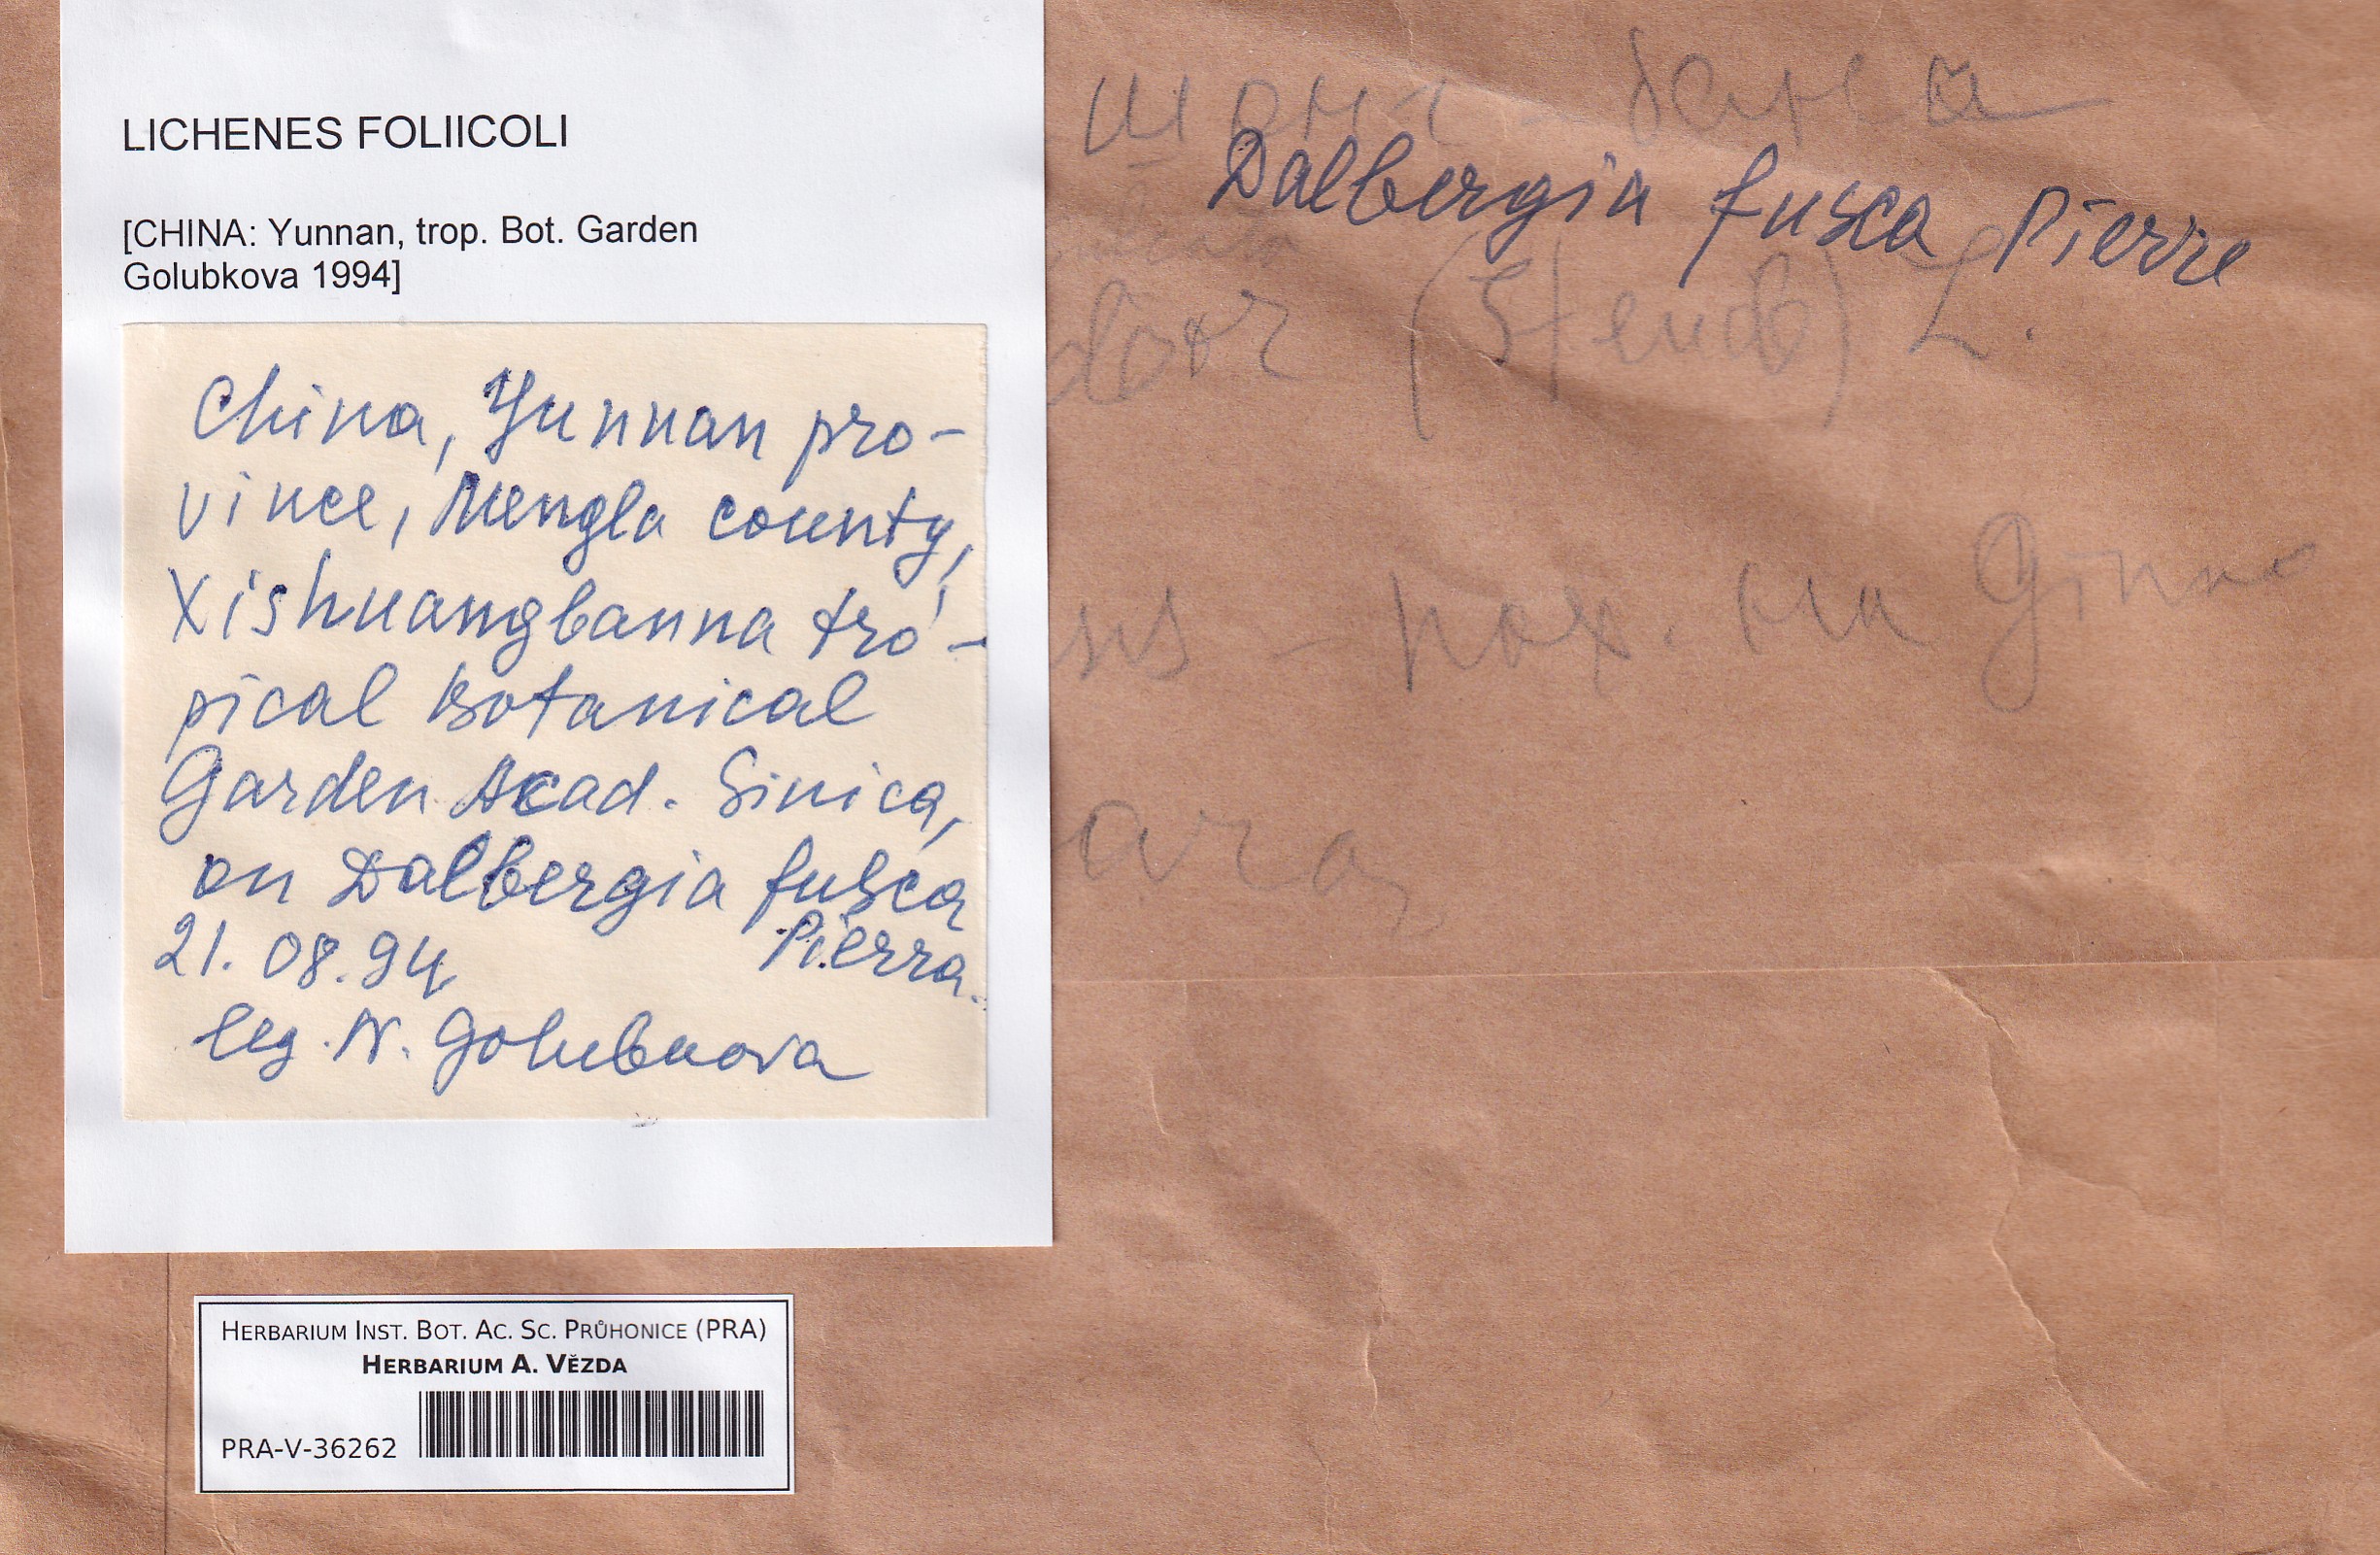 LICHENES FOLIICOLI
[CHINA: Yunnan, trop. Bot. Garden
Golubkova 1994]
China, Yunnan pro-
vince, Mengla county,
Xishuangbanna tro-
pical Botanical
Garden Acad. Sinica,
on Dalbergia fusca
Pierra.
21.08.94
leg. N. Golubkova
Dalbergia fusca Pierre
(Steud) L.
на
HERBARIUM INST. BOT. AC. SC. PRŮHONICE (PRA)
HERBARIUM A. VĚZDA
PRA-V-36262